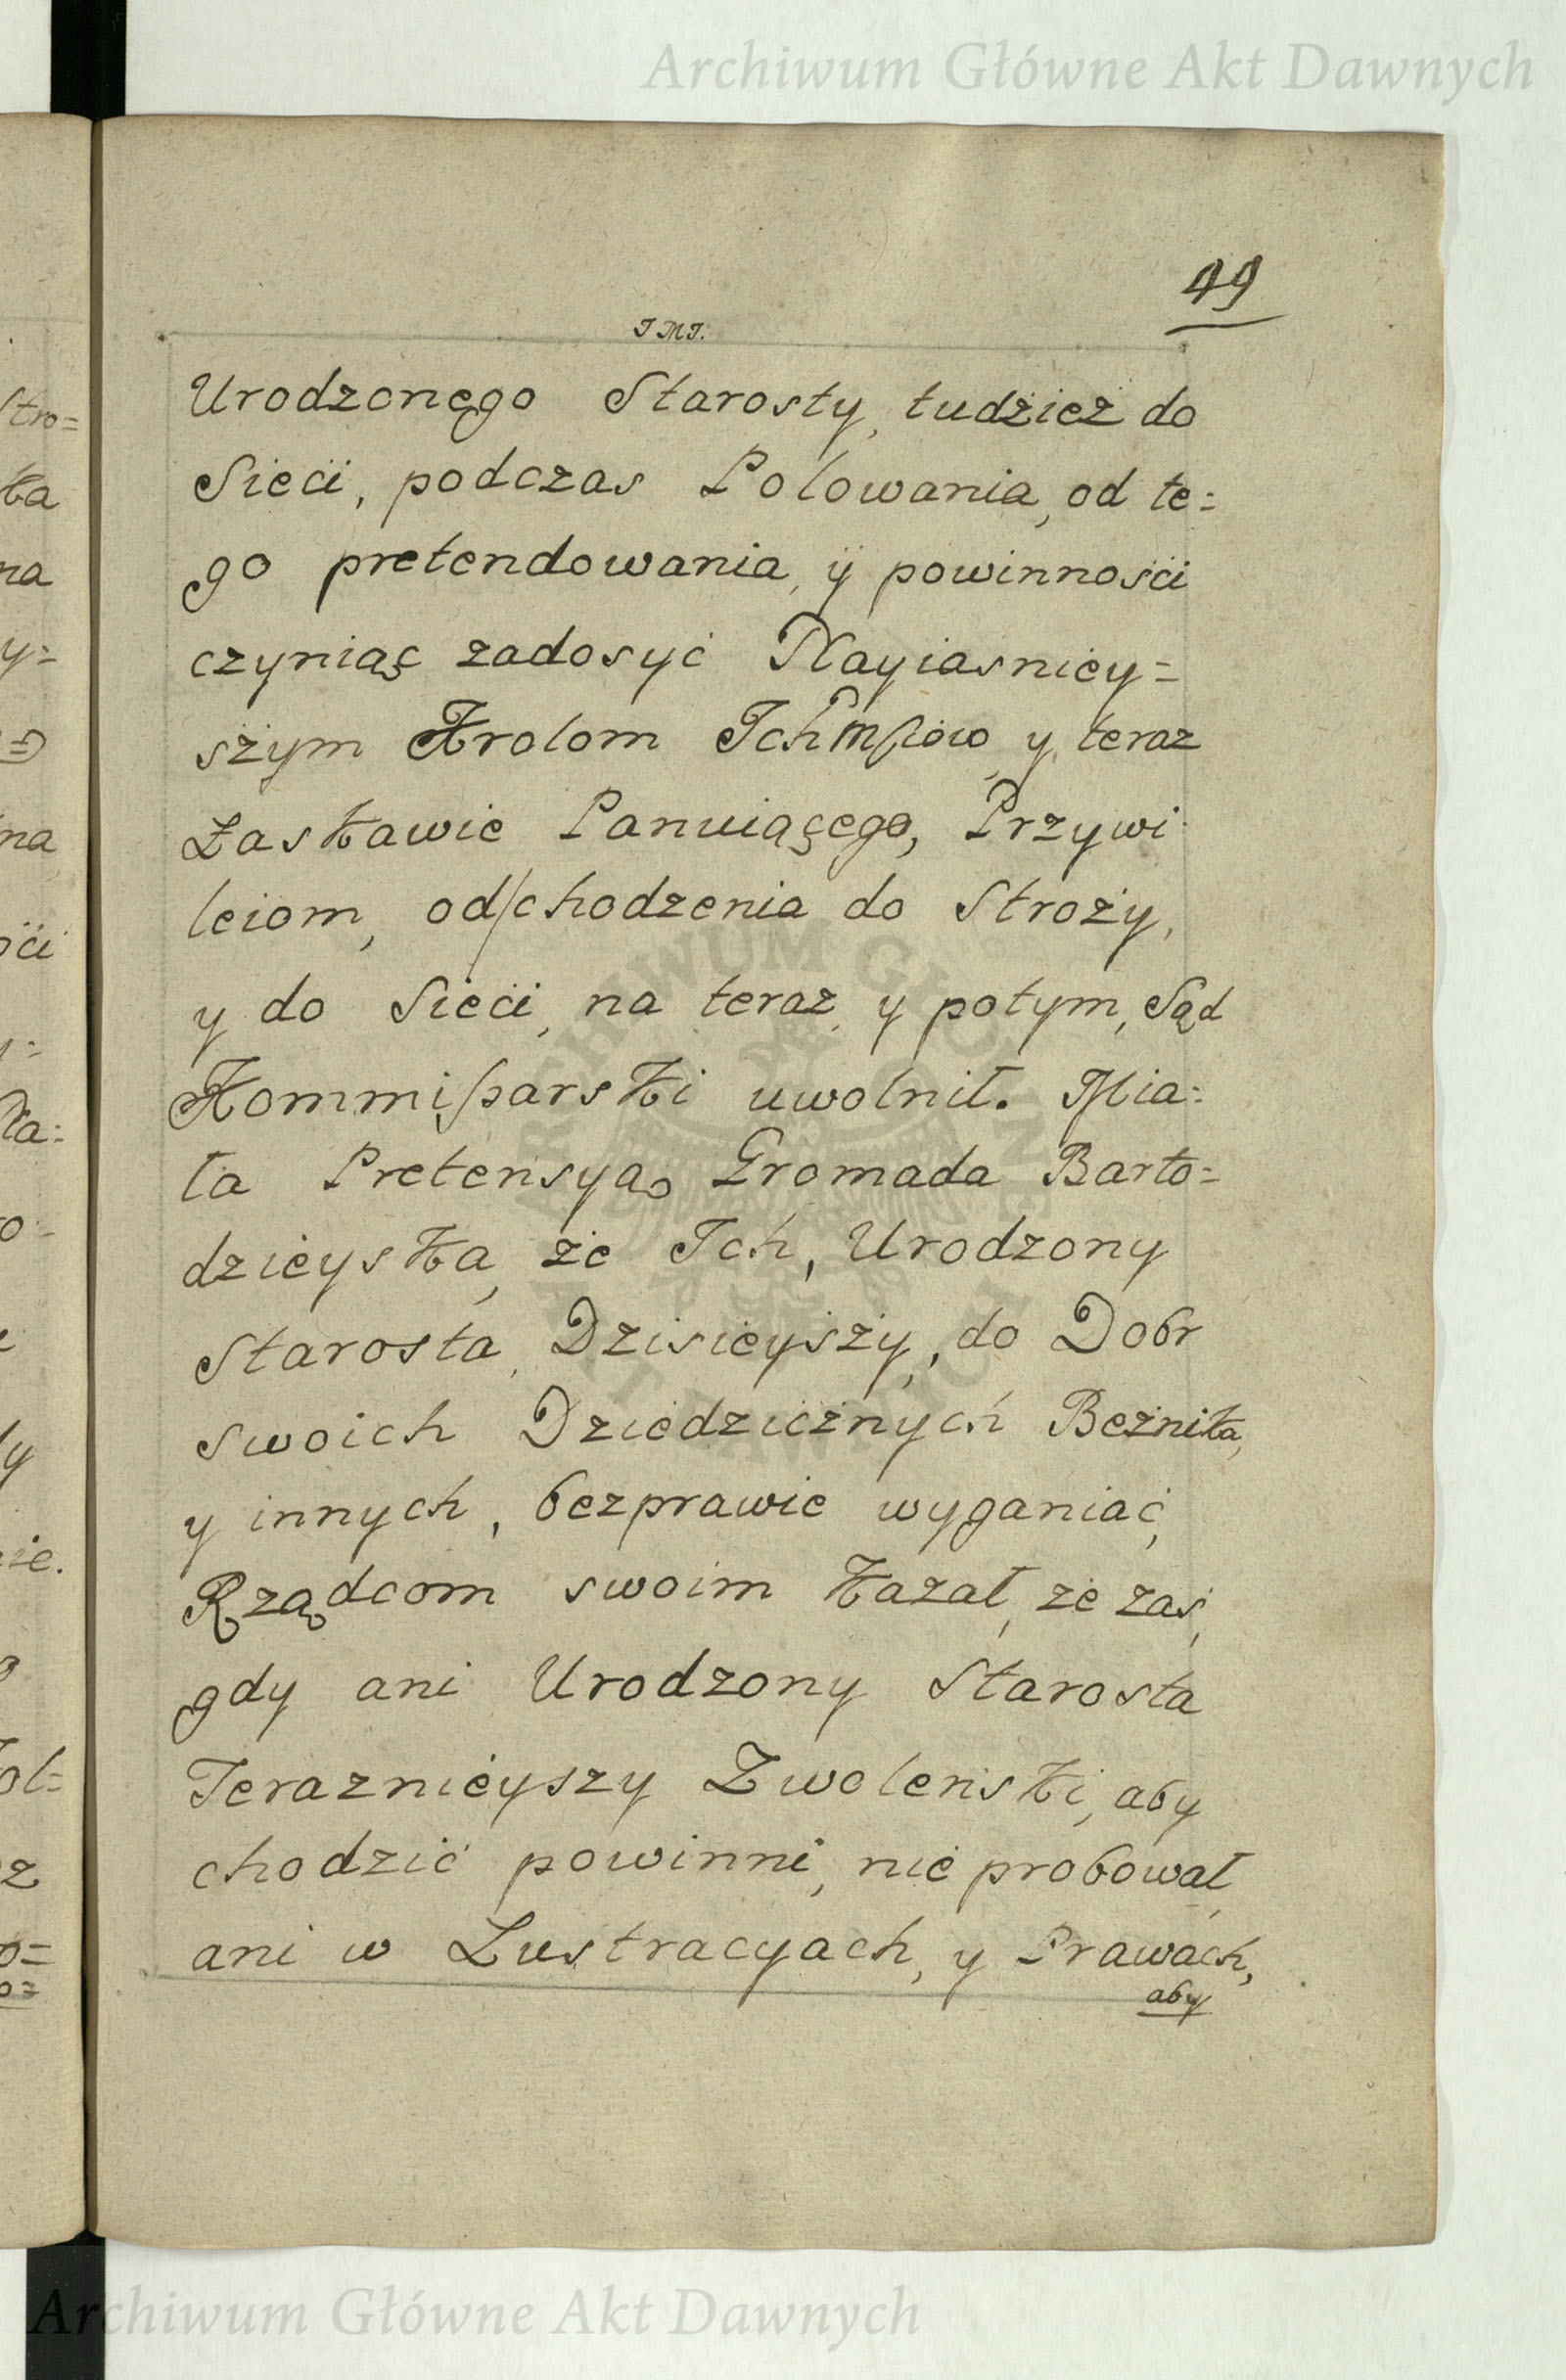 Archiwum Główne Akt Dawnych
49
J M J.
Urodzonęgo Starosty, tudźież do
Siećï, podczas Polowania, od te=
go pretendowania, ÿ powinnośćï
czyniąç zadosyć Nayiasniey=
szym Krolom Ichmśćiow, y teraz
Łaskawie Panuiąçego, Przywi
leiom, od/chodzenia do Stroży,
y do Siećï, na teraz, y potym, Sąd
Kommissarski uwolnił. Mia=
ła Pretensyą Gromada Barto=
dzieyska, że Ich, Urodzony
Starosta, Dzisieyszy, do Dobr
swoich Dziedzicznych Beznika,
y innych, bezprawie wyganiać,
Rządcom swoim kazał, że zaś,
gdy ani Urodzony Starosta
Terazniéyszy Zwoleński, aby
chodzić powinni, nie probował,
ani w Lustracyach, y Prawach,
aby
Stro=
ka
na
y=
na
ośći
ła=
o=
ie.
ol=
z
o=
Archiwum Główne Akt Dawnych